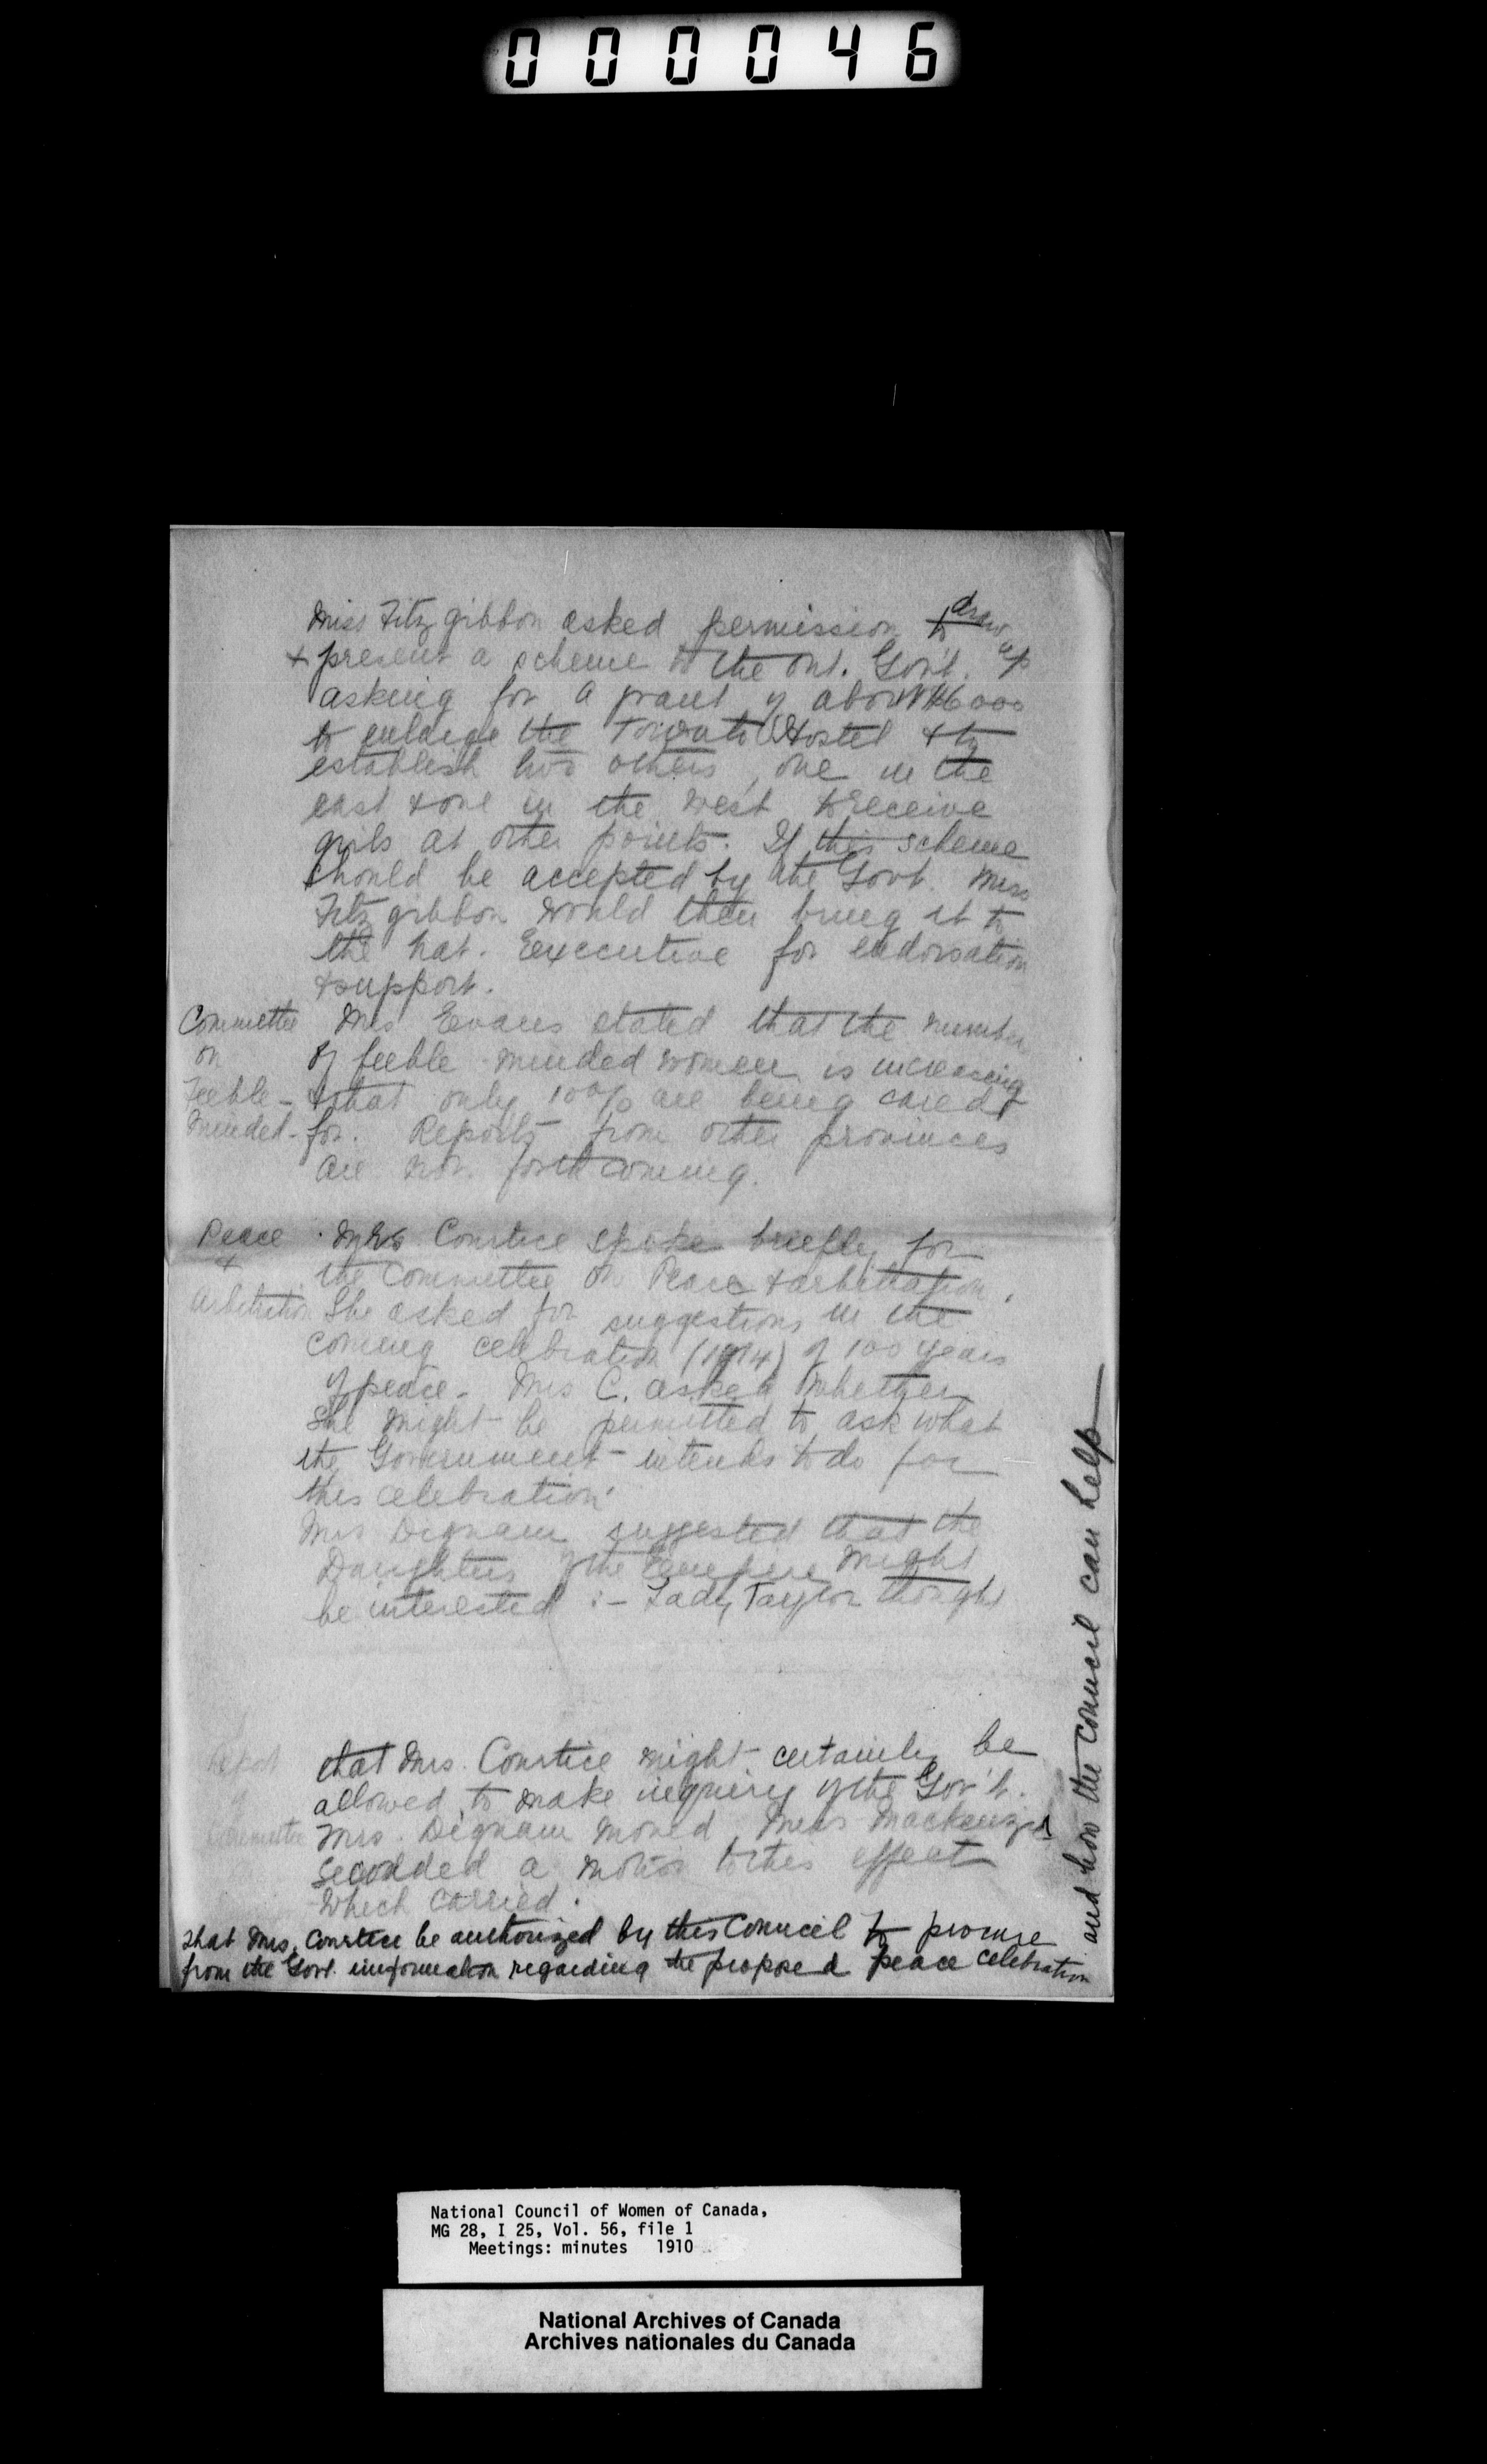 000046
Miss Fitzgibbon asked permission to draw up
& present a scheme to the Ont. Gov't.
asking for a grant of about $6000
to enlarge the Toronto Hostel & to
establish two others, one in the
east & one in the west to receive
girls at other points. If this scheme
should be accepted by the Govt. Miss
Fitzgibbon would then bring it to
the Nat. Executive for endorsation
& support.
Committee on Feeble-Minded-
Mrs Evans stated that the number
of feeble-minded women is increasing
& that only 10% are being cared
for. Reports from other provinces
are not forthcoming.
Peace & Arbitration
Mrs Courtice spoke briefly for
the Committee on Peace & Arbitration.
She asked for suggestions in the
coming celebration (1914) of 100 years
of peace - Mrs C. asked whether
she might be permitted to ask what
the Government intends to do for
this celebration.
Mrs Dignam suggested that the
Daughters of the Empire might
be interested :- Lady Taylor thought
Report of Committee
that Mrs. Courtice might certainly be
allowed to make inquiry of the Gov't.
Mrs. Dignam moved, Mrs Mackenzie
seconded a motion to this effect
which carried.
that Mrs. Courtice be authorized by this Council to procure
from the Govt. information regarding the proposed peace celebration
and how the Council can help
National Council of Women of Canada,
MG 28, I 25, Vol. 56, file 1
Meetings: minutes 1910
National Archives of Canada
Archives nationales du Canada